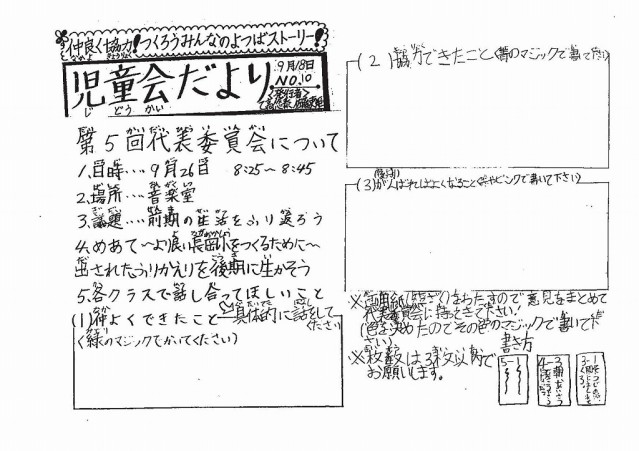 仲良く協力！つくろうみんなのよつばストーリー！
児童会だより
じどうかい
9月18日
NO.10
＜発行者＞
第5回代表委員会について
1.日時…9月26日 8:25〜8:45
2.場所…音楽室
3.議題…前期の生活をふり返ろう
4.めあて〜より良い長岡小をつくるために〜
出されたふりかえりを後期に生かそう
5.各クラスで話し合ってほしいこと
(1)仲よくできたこと
具体的に話をしてください
(緑のマジックでかいてください)
(2)協力できたこと(青のマジックで書いて下さい)
(3)がんばればよくなること(ピンクで書いて下さい)
※画用紙(短ざく)をわたすので意見をまとめて
代表委員会に持ってきて下さい!
(色を決めたのでその色のマジックで書いて下
さい)
※枚数は3枚以内で
お願いします。
書き方
5-1
4-3
3-1